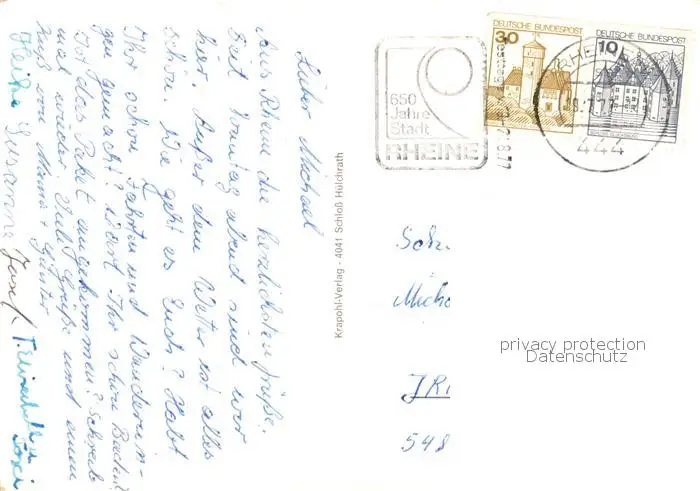 Lieber Michael
Aus Rheine die herzlichsten Grüße.
Seit Sonntag abend sind wir
hier. Außer dem Wetter ist alles
schön. Wie geht es Euch? Habt
Ihr schon Fahrten und Wanderun-
gen gemacht? Ihr schon Baden?
Ist das Paket angekommen? Schreib
mal wieder. Viele Grüße und einen
Kuß von Mama + Günter
Heike Susanne Josef
Krapohl-Verlag - 4041 Schloß Hülchrath
650
Jahre
Stadt
RHEINE
DEUTSCHE BUNDESPOST
30
DEUTSCHE BUNDESPOST
10
RHEINE
444
Sch
Micha
548
privacy protection
Datenschutz